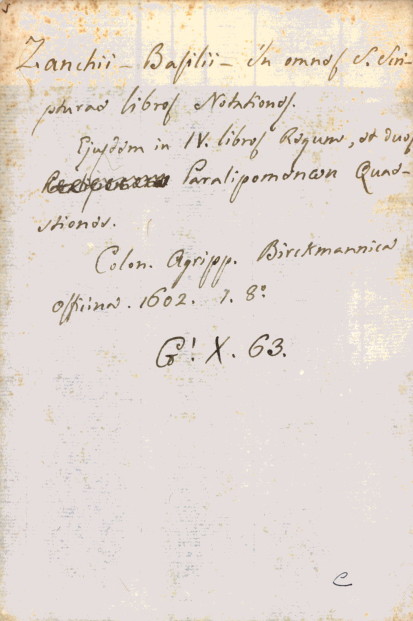 Zanchii - Basilii - In omnes S. Scri-
pturae libros Notationes.
Ejusdem in IV. libros Regum, et duos
Paralipomenωn Quae-
stiones.
Colon. Agripp. Birckmannica
Officina. 1602. 1. 8.º
G! X. 63.
C